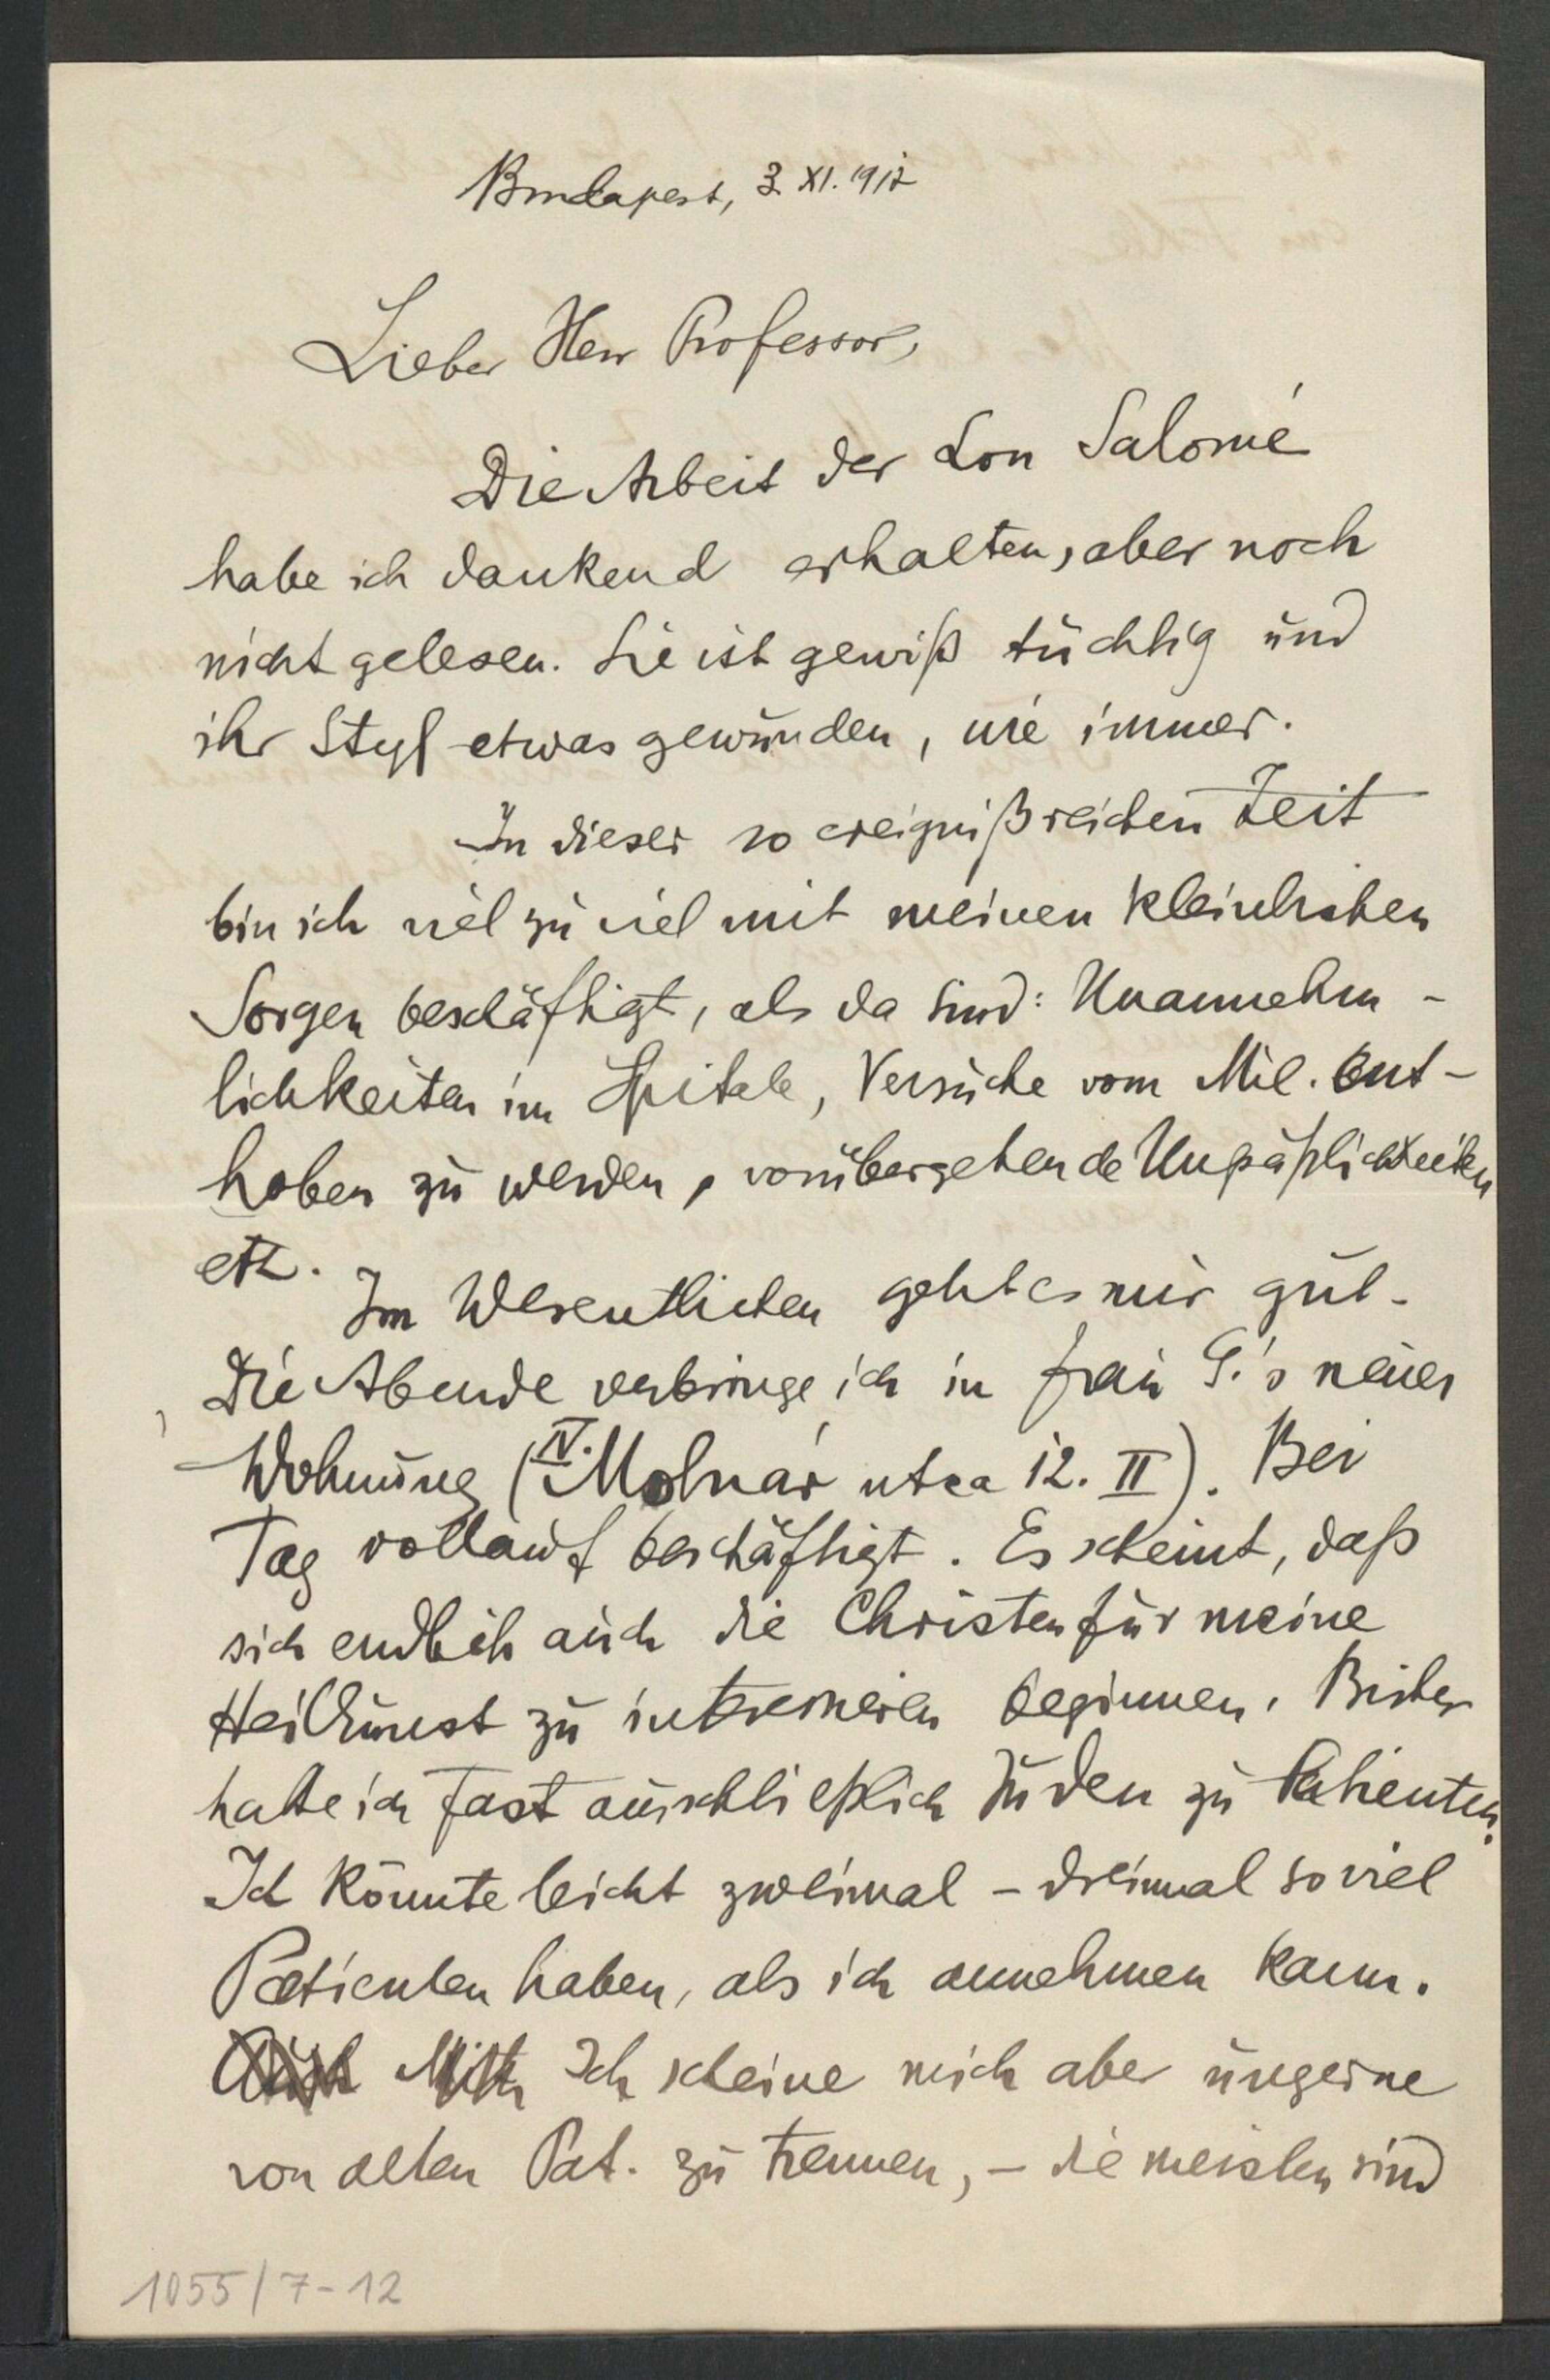 Budapest, 3. XI. 1917
Lieber Herr Professor,
Die Arbeit der Lou Salomé
habe ich dankend erhalten, aber noch
nicht gelesen. Sie ist gewiß tüchtig und
ihr Styl etwas gewunden, wie immer.
In dieser so ereignißreichen Zeit
bin ich viel zu viel mit meinen kleinlichen
Sorgen beschäftigt, als da sind: Unannehm-
lichkeiten im Spitale, Versuche vom Mil. ent-
hoben zu werden, vorübergehende Unpäßlichkeiten
etc. Im Wesentlichen geht es mir gut.
Die Abende verbringe ich in Frau G.'s neuer
Wohnung (IV. Molnár utca 12. II). Bei
Tag vollauf beschäftigt. Es scheint, daß
sich endlich auch die Christen für meine
Heilkunst zu interessieren beginnen. Bisher
hatte ich fast ausschließlich Juden zu Patienten.
Ich könnte leicht zweimal - dreimal soviel
Patienten haben, als ich annehmen kann.
Ich scheine mich aber ungerne
von alten Pat. zu trennen, - die meisten sind
1055/7-12